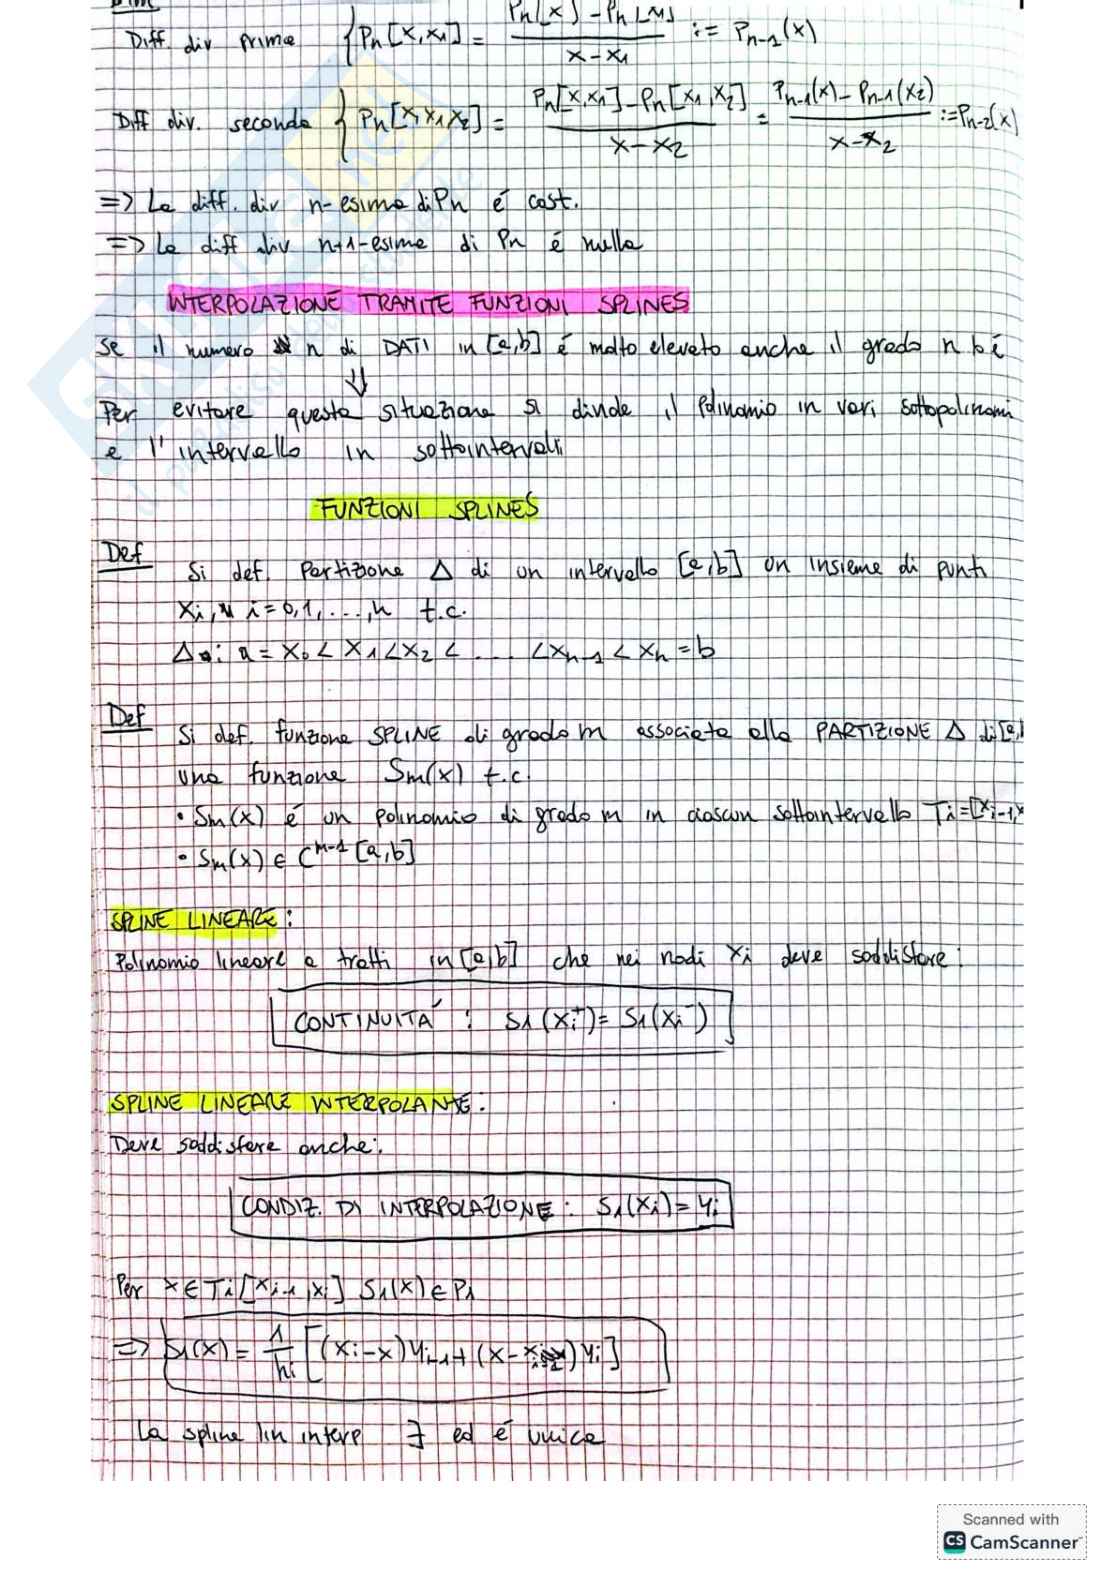 Dim
Diff. div prima { Pn[x,x1] = (Pn[x] - Pn[x1]) / (x - x1) := Pn-1(x)
Diff div. seconda { Pn[x,x1,x2] = (Pn[x,x1] - Pn[x1,x2]) / (x - x2) = (Pn-1(x) - Pn-1(x2)) / (x - x2) := Pn-2(x)
=> La diff. div n-esima di Pn é cost.
=> La diff div n+1-esima di Pn é nulla
INTERPOLAZIONE TRAMITE FUNZIONI SPLINES
Se il numero n di DATI in [a,b] é molto elevato anche il grado n lo é
⇓
Per evitare questa situazione si divide il polinomio in vari sottopolinomi
e l'intervallo in sottointervalli
FUNZIONI SPLINES
Def
Si def. Partizione Δ di un intervallo [a,b] un insieme di punti
xi, i=0,1,...,n t.c.
Δ: a = x0 < x1 < x2 < .... < xn-1 < xn = b
Def
Si def. funzione SPLINE di grado m associata alla PARTIZIONE Δ di [a,
una funzione Sm(x) t.c.
• Sm(x) é un polinomio di grado m in ciascun sottointervallo Ti=[xi-1,x
• Sm(x) ∈ C^m-1 [a,b]
SPLINE LINEARE:
Polinomio lineare a tratti in [a,b] che nei nodi xi deve soddisfare:
CONTINUITÀ : S1(xi+) = S1(xi-)
SPLINE LINEARE INTERPOLANTE:
Deve soddisfare anche:
CONDIZ. DI INTERPOLAZIONE: S1(xi) = yi
Per x ∈ Ti[xi-1,xi] S1(x) ∈ P1
=> S1(x) = 1/hi [(xi-x)yi-1 + (x-xi-1)yi]
La spline lin interp ∃ ed é unica
Scanned with
CS CamScanner